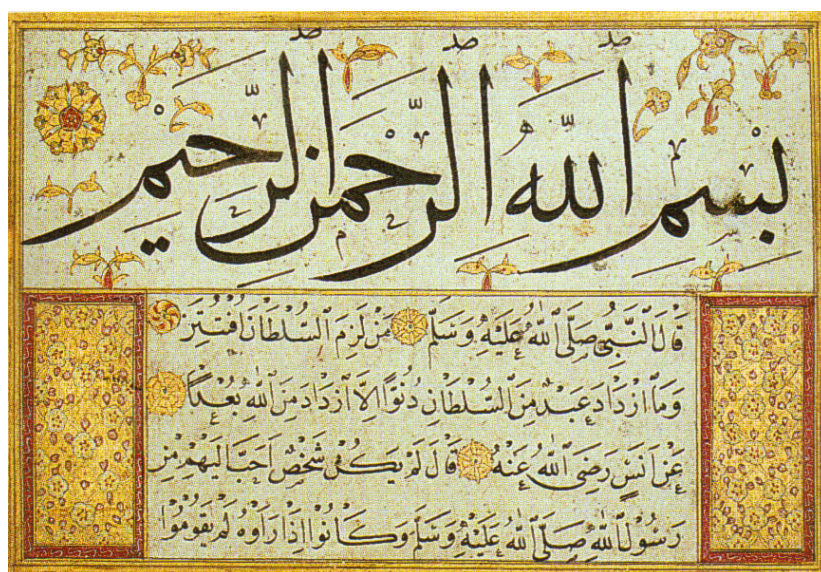 بِسْمِ اللهِ الرَّحْمٰنِ الرَّحِيْمِ
قَالَ النَّبِيُّ صَلَّى اللهُ عَلَيْهِ وَسَلَّمَ مَنْ لَزِمَ السُّلْطَانَ اُفْتُتِنَ
وَمَا ازْدَادَ عَبْدٌ مِنَ السُّلْطَانِ دُنُوًّا اِلَّا ازْدَادَ مِنَ اللهِ بُعْدًا
عَنْ اَنَسٍ رَضِيَ اللهُ عَنْهُ قَالَ لَمْ يَكُنْ شَخْصٌ اَحَبَّ اِلَيْهِمْ مِنْ
رَسُولِ اللهِ صَلَّى اللهُ عَلَيْهِ وَسَلَّمَ وَكَانُوا اِذَا رَاَوْهُ لَمْ يَقُومُوا